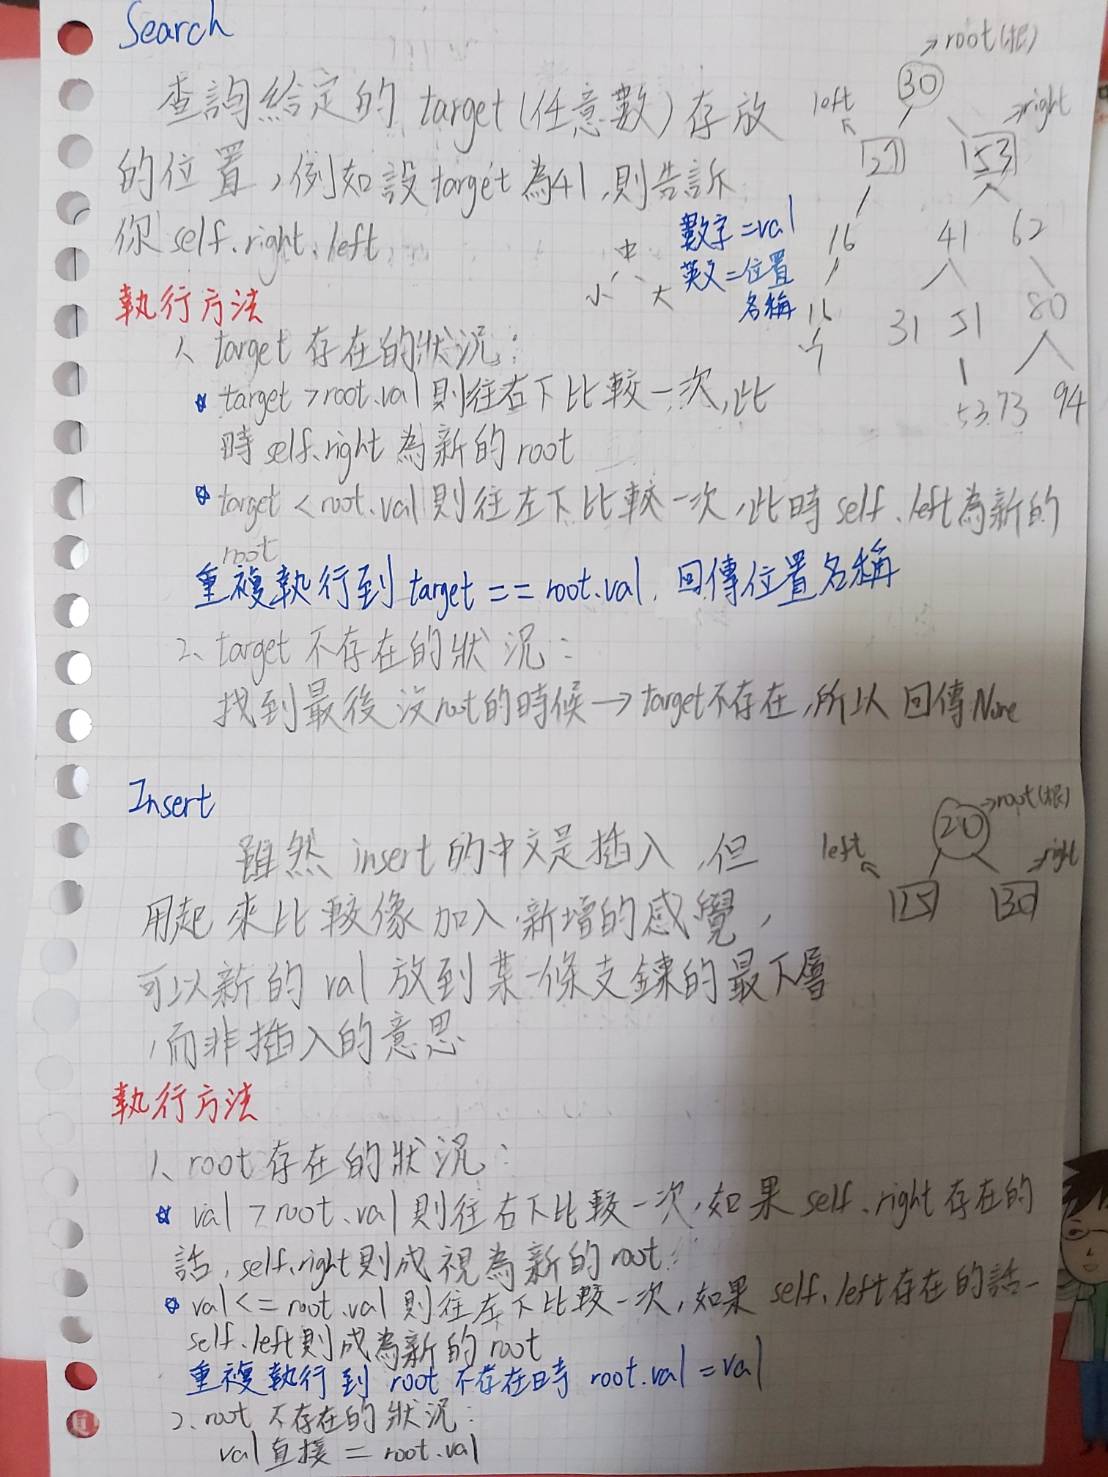 Search
查詢給定的 target(任意數)存放
的位置,例如設target為41,則告訴
你 self.right.left
→root(根)
30
left
→right
27
53
數字=val
英文=位置
名稱
中
小 大
16
41
62
16
31
51
80
53
73
94
執行方法
1、target 存在的狀況:
target >root.val則往右下比較一次,此
時 self.right 為新的 root
target <root.val則往左下比較一次,此時 self.left為新的
root
重複執行到 target == root.val. 回傳位置名稱
2、target 不存在的狀況:
找到最後沒root的時候→target不存在,所以回傳None
Insert
→root(根)
20
left
→right
15
30
雖然 insert的中文是插入,但
用起來比較像加入、新增的感覺,
可以新的 val 放到某一條支鍊的最下層
,而非插入的意思
執行方法
1、root 存在的狀況:
val >root.val則往右下比較一次,如果 self.right存在的
話,self.right則成視為新的root
val<=root.val 則往左下比較一次,如果 self.left存在的話
self.left則成為新的root
重複執行到 root 不存在時 root.val =val
2.root 不存在的狀況:
val直接 = root.val